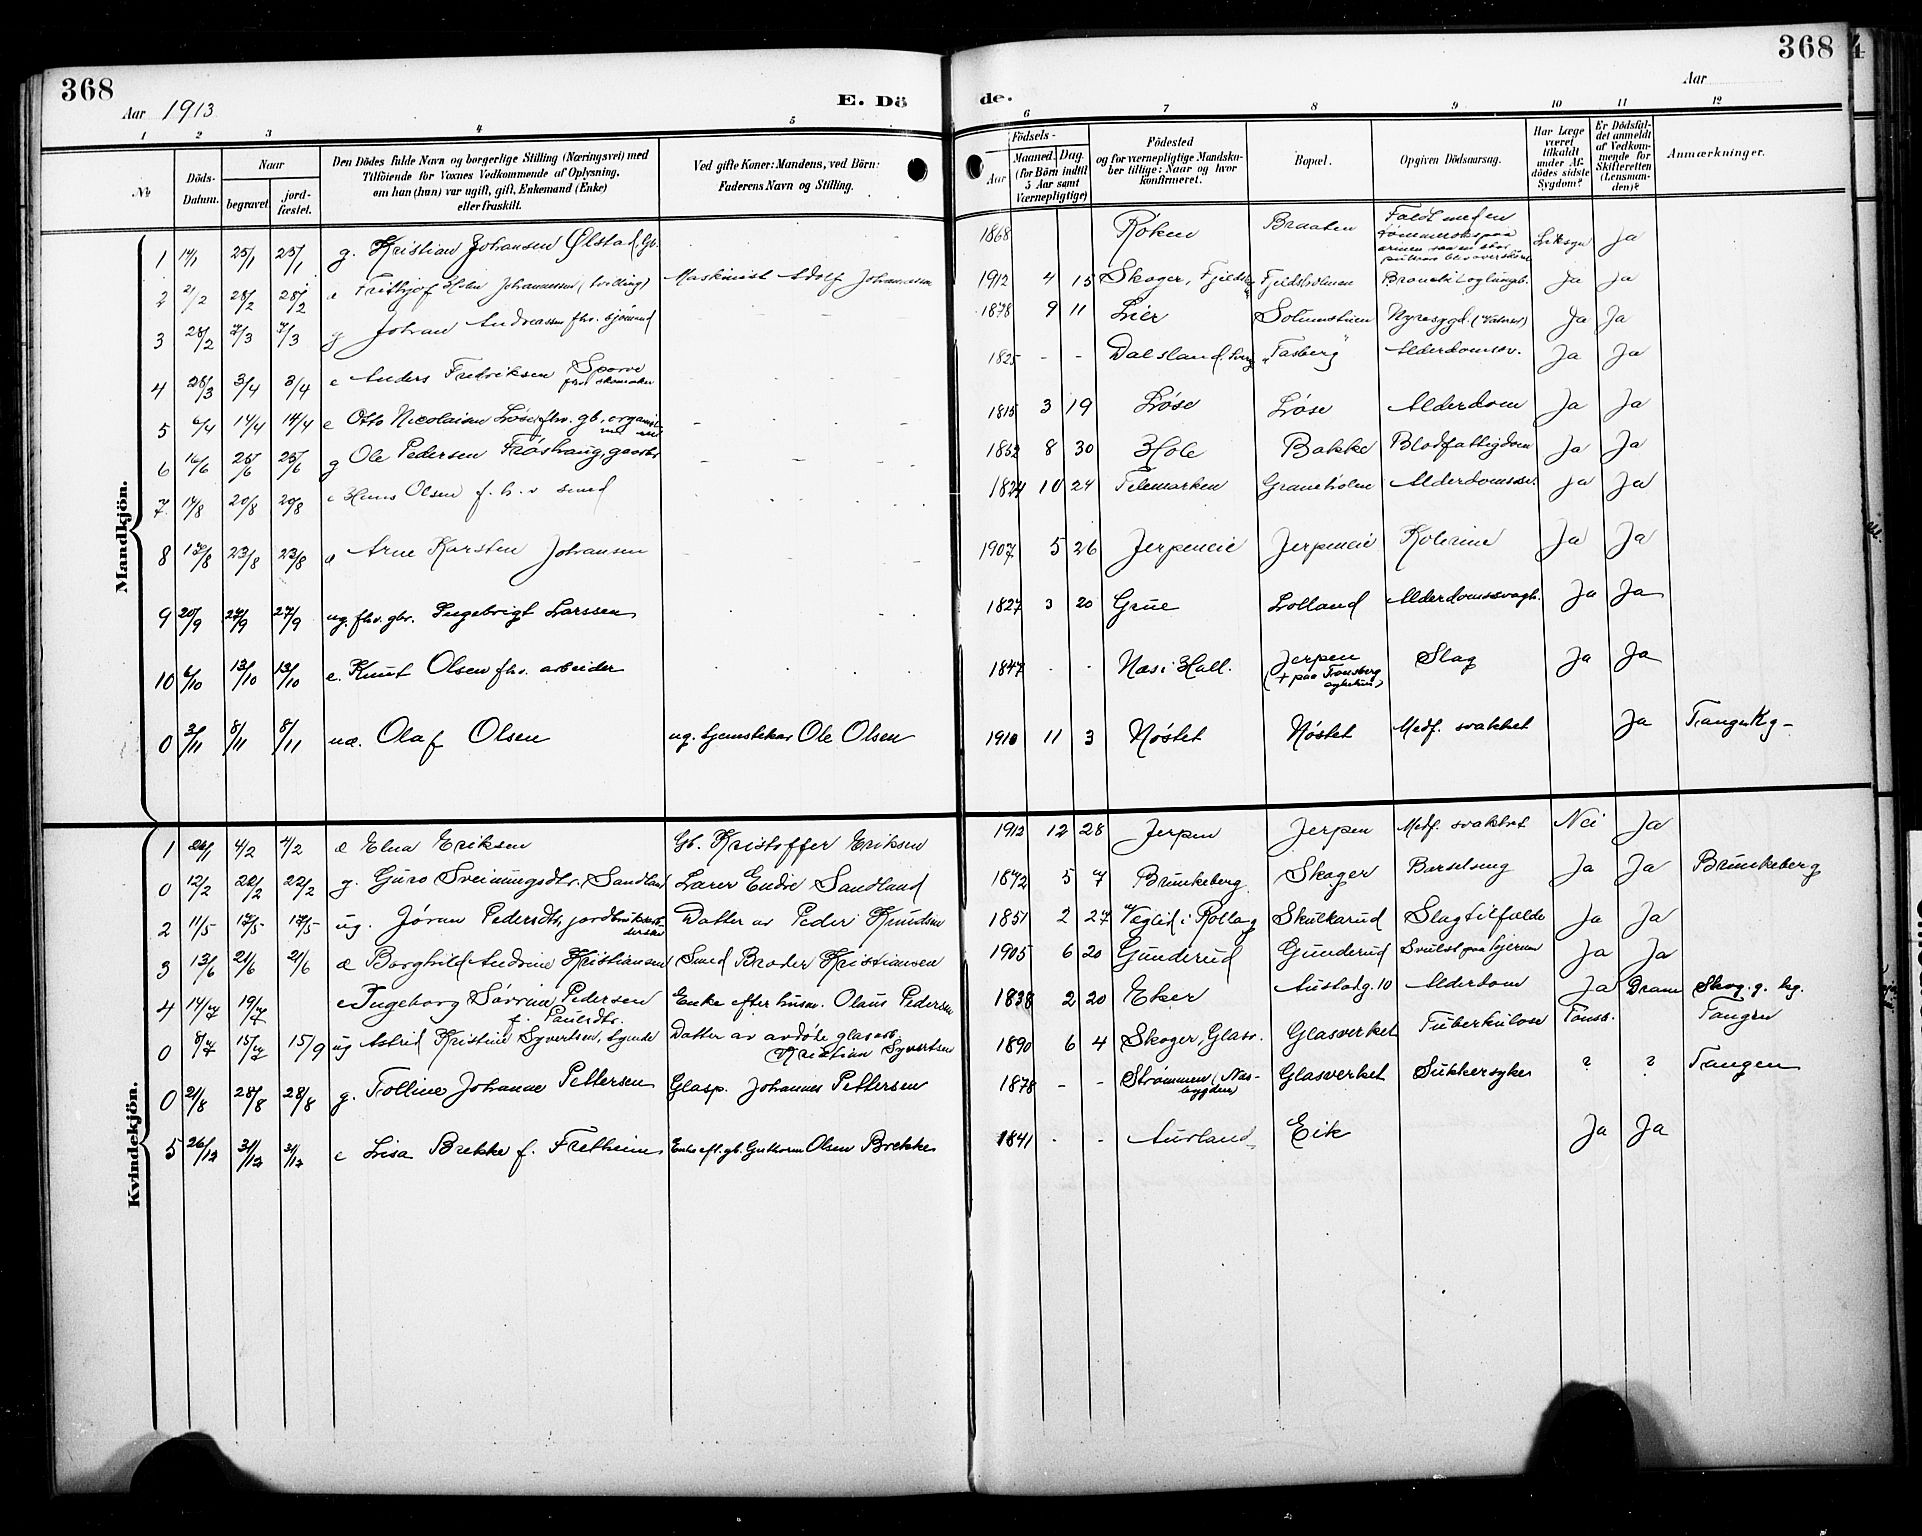 368
Aar 1913
E. Dö
de.
368
Aar
1 2 3 4 5 6 7 8 9 10 11 12
No
Döds-Datum.
Naar
begravet.
jord-fæstet.
Den Dödes fulde Navn og borgerlige Stilling (Næringsvei) med
Tilföiende for Voxnes Vedkommende af Oplysning,
om han (hun) var ugift, gift, Enkemand (Enke)
eller fraskilt.
Ved gifte Koner: Mandens, ved Börn:
Faderens Navn og Stilling.
Födsels-
Aar
Maaned. Dag.
(for Börn indtil
5 Aar samt
Værnepligtige)
Födested
og for værnepligtige Mandska-
ber tillige: Naar og hvor
konfirmeret.
Bopæl.
Opgiven Dödsaarsag.
Har Læge
været
tilkaldt
under Af-
dödes sidste
Sygdom?
Er Dödsfal-
det anmeldt
af Vedkom-
mende for
Skifteretten
(Lensman-
den)?
Anmærkninger.
Mandkjön.
1 14/1 25/1 25/1 g. Kristian Johansen Ølstad, Gb. 1868 Røken Braaten Faldt med en Liksyn Ja
2 2/2 28/2 28/2 e Frithjof Johannessen (tvilling) Maskinist Adolf Johannessen 1912 4 15 Skoger, Fjeldsholmen Bronchit og lungeb. Ja Ja
3 28/2 7/3 7/3 g Johan Andreassen fhv. sjømand 1878 9 11 Lier Solumstuen Nyresygd. Ja Ja
4 28/3 3/4 3/4 e Anders Fredriksen Sporve fhv. skomaker 1825 - - Dalsland, Sverg "Tasberg" Alderdomssv. Ja Ja
5 6/4 14/4 14/4 e Otto Nicolaisen Løse, fhv. gb., organist - - 1815 3 19 Løse Løse Alderdom Ja Ja
6 16/6 25/6 25/6 g Ole Pedersen Frøshaug, gaardbr - - 1832 8 30 Hole Bakke Blodfattigdom Ja Ja
7 14/8 20/8 20/8 e Hans Olsen f. h. v smed 1824 10 24 Telemarken Graneholen Alderdomssv. Ja Ja
8 17/8 23/8 23/8 æ Arne Karsten Johansen 1907 5 26 Jerpeneie Jerpeneie Kolerine Ja Ja
9 20/9 27/9 27/9 ug. fhv. gbr. Ingebrigt Larssen 1827 3 20 Grue Lolland Alderdomssvagh. Ja Ja
10 6/10 13/10 13/10 e. Knut Olsen fhv. arbeider 1847 - - Næs i Hall. Jerpen (+ paa Tønsberg sykehus) Slag Ja Ja
0 3/11 8/11 8/11 uæ. Olaf Olsen ug. tjenstekar Ole Olsen 1910 11 3 Nøstet Nøstet Medf. svakhet Ja Tangen Kg-
Kvindekjön.
1 26/1 4/2 4/2 æ Elna Eriksen Gb. Kristoffer Eriksen 1912 12 28 Jerpen Jerpen Medf. svakhet Nei Ja
0 12/2 22/2 22/2 g. Guro Sveinungsdtr. Sandland Lærer Endre Sandland 1872 5 7 Brunkeberg Skoger Barselseng Ja Ja Brunkeberg
2 11/5 17/5 17/5 ug. Jøran Pedersdtr, jordbrukerske Datter av Peder Knudsen 1851 2 27 Veglid i Rollag Skulkerud Slagtilfælde Ja Ja
3 13/6 21/6 21/6 æ Borghild Andrine Kristiansen Smed Brader Kristiansen 1905 6 20 Gunderud Gunderud Svulst paa hjernen Ja Ja
4 14/7 19/7 e Ingeborg Sørine Pedersen f. Paulsdtr. Enke efter husm. Olaus Pedersen 1838 2 20 Eker Austadg. 10 Alderdom Ja Dram Skog. g. kg.
0 8/7 15/7 15/9 ug Astrid Kristine Syvertsen, syerske Datter av avdøde glasarb. Kristian Syvertsen 1890 6 4 Skoger, Glasv. Glasverket Tuberkulose Tønsb. Tangen
0 21/8 28/8 28/8 g. Tolline Johanne Pettersen Glasp. Johannes Pettersen 1878 - - Strømmen (Næsbygden) Glasverket Sukkersyke ? ? Tangen
5 26/12 31/12 31/12 e Lisa Brekke f. Fretheim Enke eft. gb. Guthorm Olsen Brekke 1841 - - Aurland Eik Ja Ja